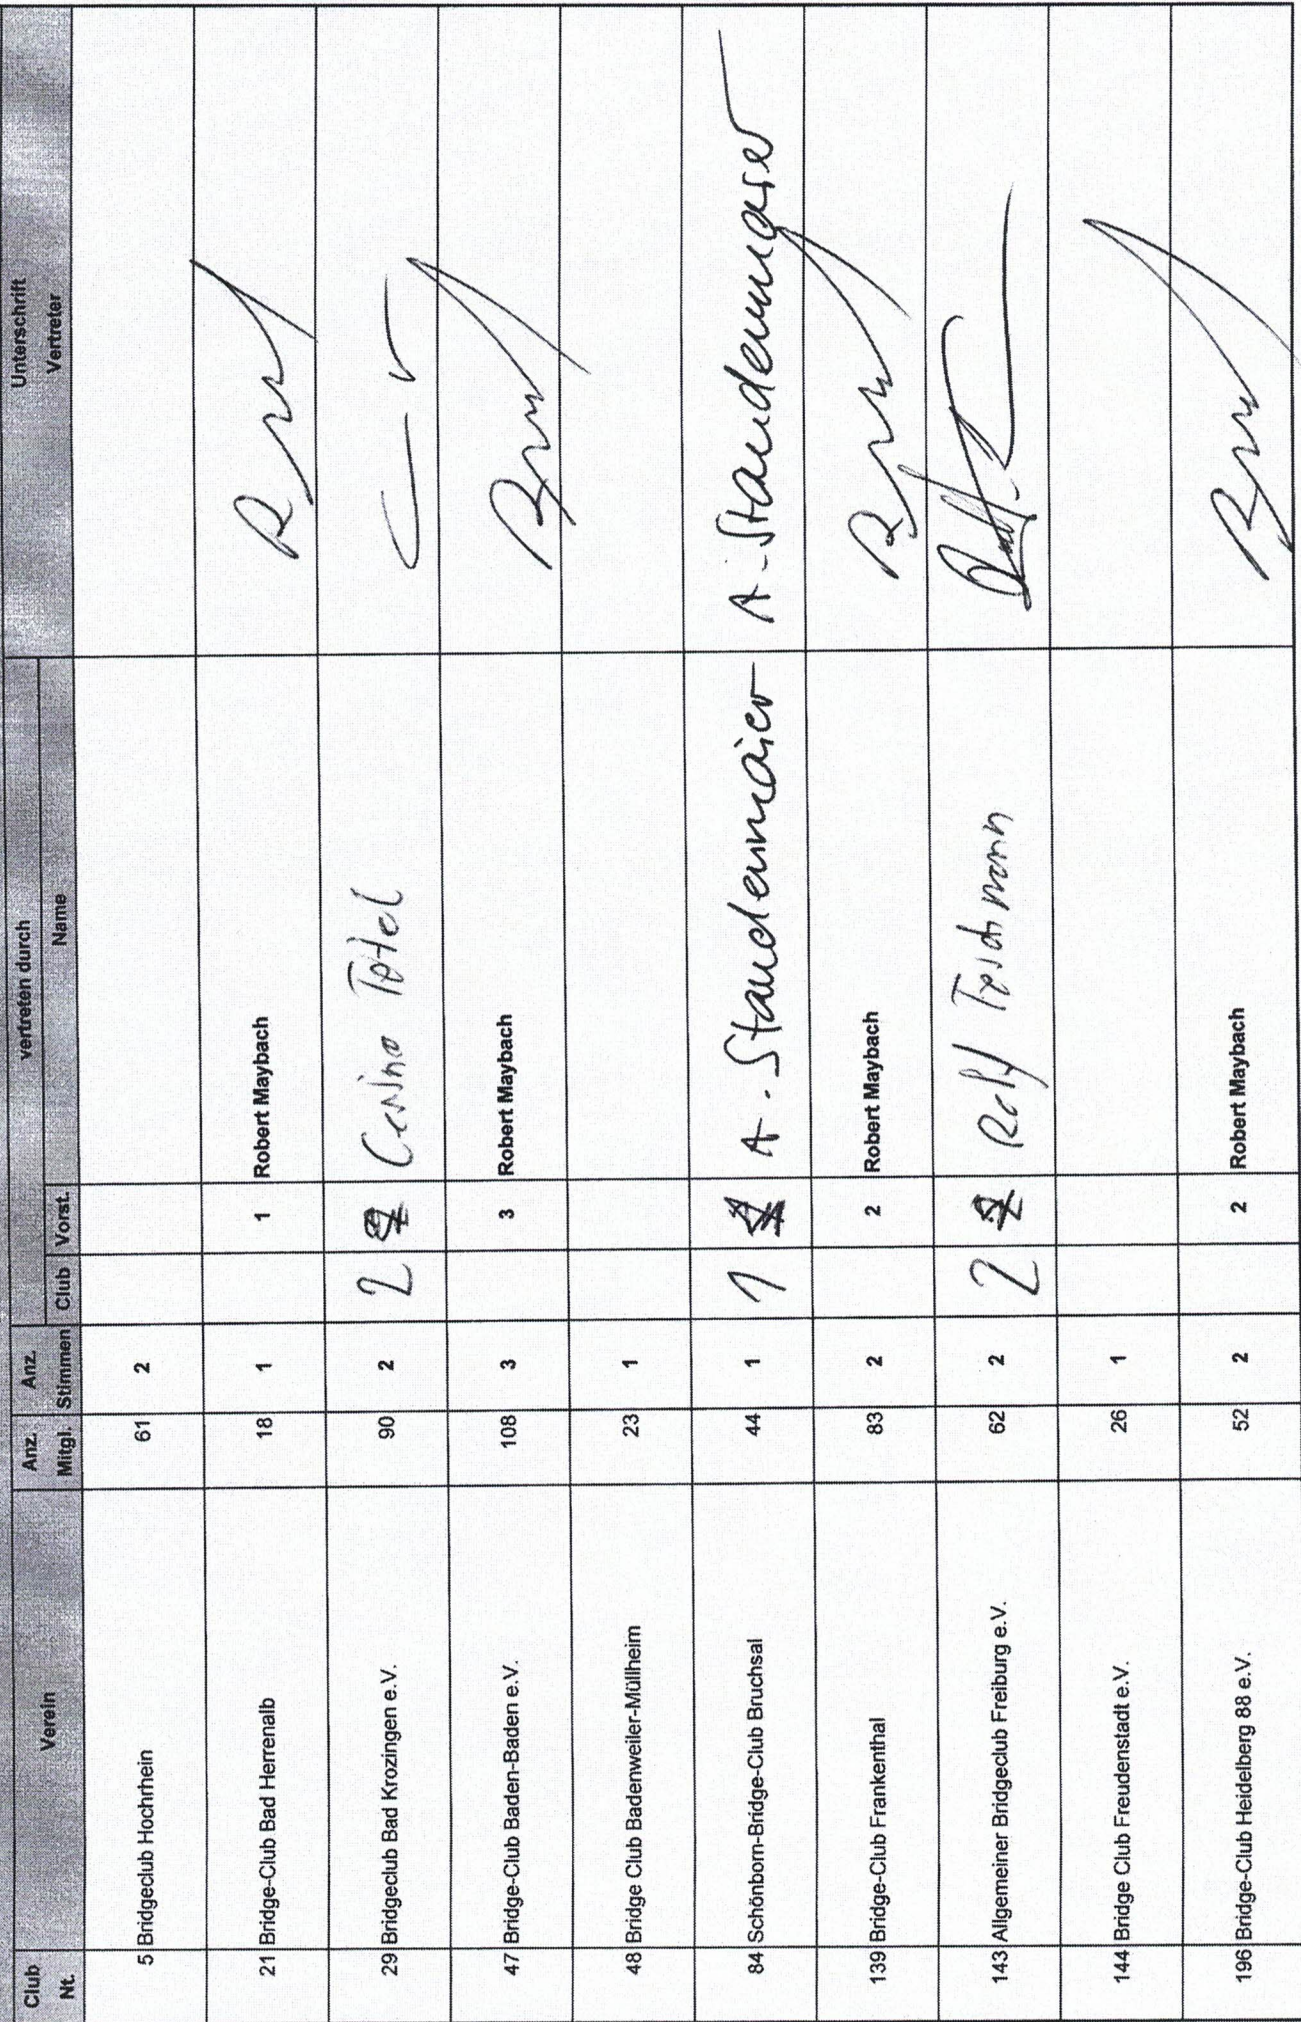 Club Nt. Verein Anz. Mitgl. Anz. Stimmen vertreten durch Unterschrift Vertreter
Club Vorst. Name
5 Bridgeclub Hochrhein 61 2
21 Bridge-Club Bad Herrenalb 18 1 1 Robert Maybach
29 Bridgeclub Bad Krozingen e.V. 90 2 2
47 Bridge-Club Baden-Baden e.V. 108 3 3 Robert Maybach
48 Bridge Club Badenweiler-Müllheim 23 1
84 Schönborn-Bridge-Club Bruchsal 44 1 1 A. Staudenmaier A. Staudenmaier
139 Bridge-Club Frankenthal 83 2 2 Robert Maybach
143 Allgemeiner Bridgeclub Freiburg e.V. 62 2 2 Ralf
144 Bridge Club Freudenstadt e.V. 26 1
196 Bridge-Club Heidelberg 88 e.V. 52 2 2 Robert Maybach